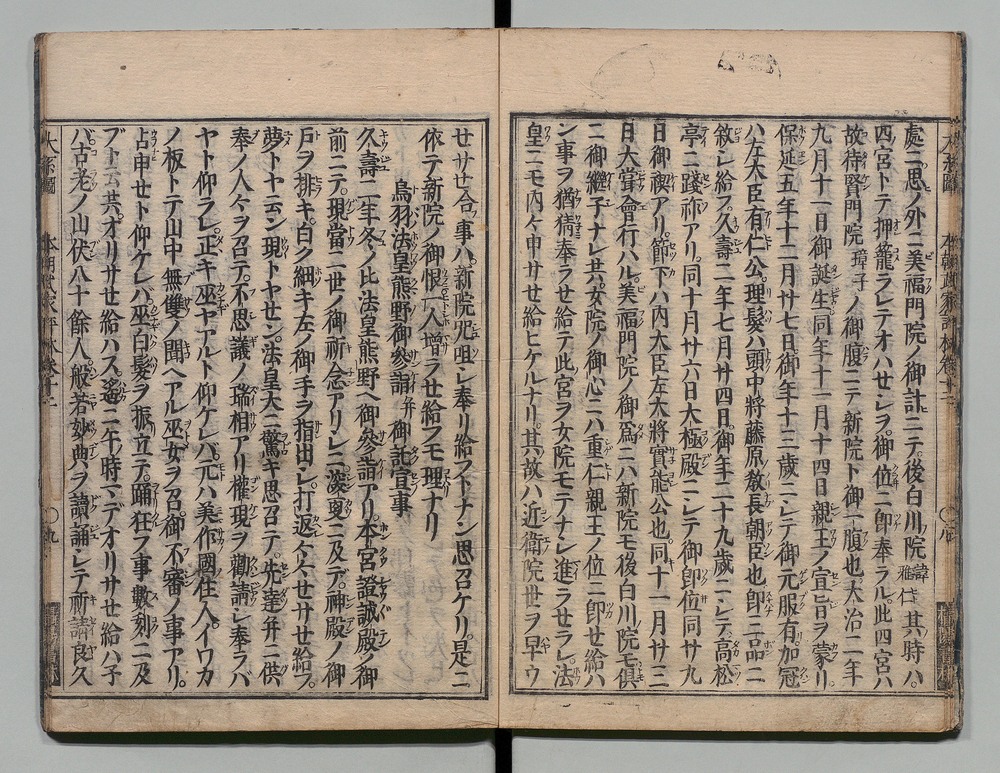 處ニ思ノ外ニ美福門院ノ御計ニテ後白川院諱雅仁其時ハ
四宮トテ押籠ラレテオハセシヲ御位ニ即奉ラル此四宮ハ
故待賢門院璋子ノ御腹ニテ新院ト御一腹也大治二年
九月十一日御誕生同年十一月十四日親王ノ宣旨ヲ蒙リ
保延五年十二月廿七日御年十三歳ニシテ御元服有加冠
ハ左大臣有仁公理髮ハ頭中將藤原敎長朝臣也即三品ニ
敘シ給フ久壽二年七月廿四日御年二十九歳ニシテ高松
亭ニ踐祚アリ同十月廿六日大極殿ニシテ御即位同廿九
日御禊アリ節下ハ內大臣左大將實能公也同十一月廿三
日大甞會行ハル美福門院ノ御爲ニハ新院モ後白川院モ俱
ニ御繼子ナレ共女院ノ御心ニハ重仁親王ノ位ニ即セ給ハ
ン事ヲ猶猜奉ラセ給テ此宮ヲ女院モテナシ進ラセラレ法
皇ニモ內々申サセ給ヒケルナリ其故ハ近衞院世ヲ早ウ
セサセ合事ハ新院咒咀シ奉リ給フトナン思召ケリ是ニ
依テ新院ノ御恨一入増ラセ給フモ理ナリ
鳥羽法皇熊野御參詣并御託宣事
久壽二年冬ノ比法皇熊野ヘ御參詣アリ本宮證誠殿ノ御
前ニテ現當二世ノ御祈念アリシニ深更ニ及デ神殿ノ御
戸ヲ排キ白ク細キ左ノ御手ヲ指出シ打返々々セサセ給フ
夢トヤ云ン現トヤセン法皇大ニ驚キ思召テ先達并ニ供
奉ノ人々ヲ召テ不思議ノ瑞相アリ權現ヲ勸請シ奉ラバ
ヤト仰ラレ正キ巫ヤアルト仰ケレバ元ハ美作國住人イワカ
ノ板トテ山中無雙ノ聞ヘアル巫女ヲ召御不審ノ事アリ
占申セト仰ケレバ巫白髮ヲ振立テ踊狂フ事數刻ニ及
ブト云共オリサセ給ハス遙ニ午時マデオリサセ給ハ子
バ古老ノ山伏八十餘人般若妙典ヲ讀誦シテ祈請良久